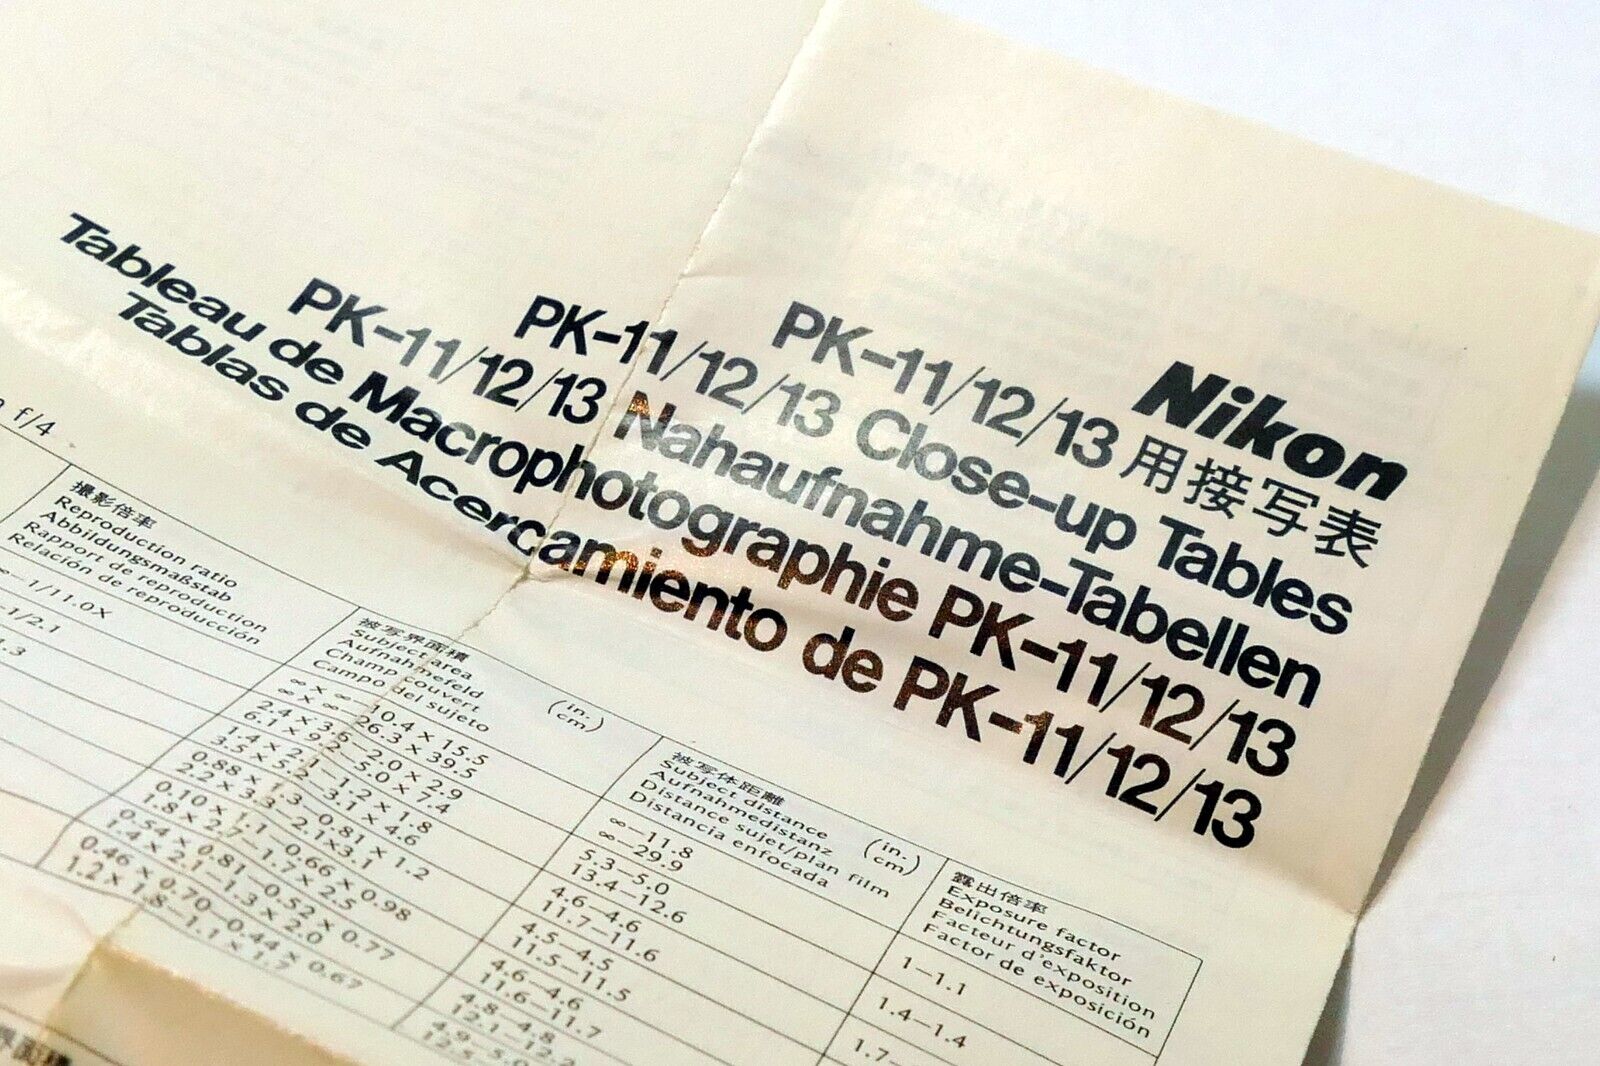 Nikon
PK-11/12/13用接写表
PK-11/12/13 Close-up Tables
PK-11/12/13 Nahaufnahme-Tabellen
Tableau de Macrophotographie PK-11/12/13
Tablas de Acercamiento de PK-11/12/13
f/4
撮影倍率
Reproduction ratio
Abbildungsmaßstab
Rapport de reproduction
Relación de reproducción
被写界面積
Subject area
Aufnahmefeld
Champ couvert
Campo del sujeto
(in.)
(cm)
被写体距離
Subject distance
Aufnahmedistanz
Distance sujet/plan film
Distancia enfocada
(in.)
(cm)
露出倍率
Exposure factor
Belichtungsfaktor
Facteur d'exposition
Factor de exposición
∞—1/11.0X
∞ × ∞—10.4 × 15.5
∞ × ∞—26.3 × 39.5
∞—11.8
∞—29.9
1—1.1
1/2.1
2.4 × 3.6—2.0 × 2.9
6.1 × 9.2—5.0 × 7.4
5.3—5.0
13.4—12.6
1.4—1.4
1.4 × 2.1—1.2 × 1.8
3.5 × 5.2—3.1 × 4.6
4.6—4.6
11.7—11.6
1.7
0.88 × 1.3—0.81 × 1.2
2.2 × 3.3—2.1×3.1
4.5—4.5
11.5—11.5
0.10 × 1.1—0.66 × 0.98
1.8 × 2.7—1.7 × 2.5
4.6—4.6
11.6—11.7
0.54 × 0.81—0.52 × 0.77
1.4 × 2.1—1.3 × 2.0
4.8—4.8
12.1—12.2
0.46 × 0.70—0.44 × 0.67
1.2 × 1.8—1.1 × 1.7
4.9—5.0